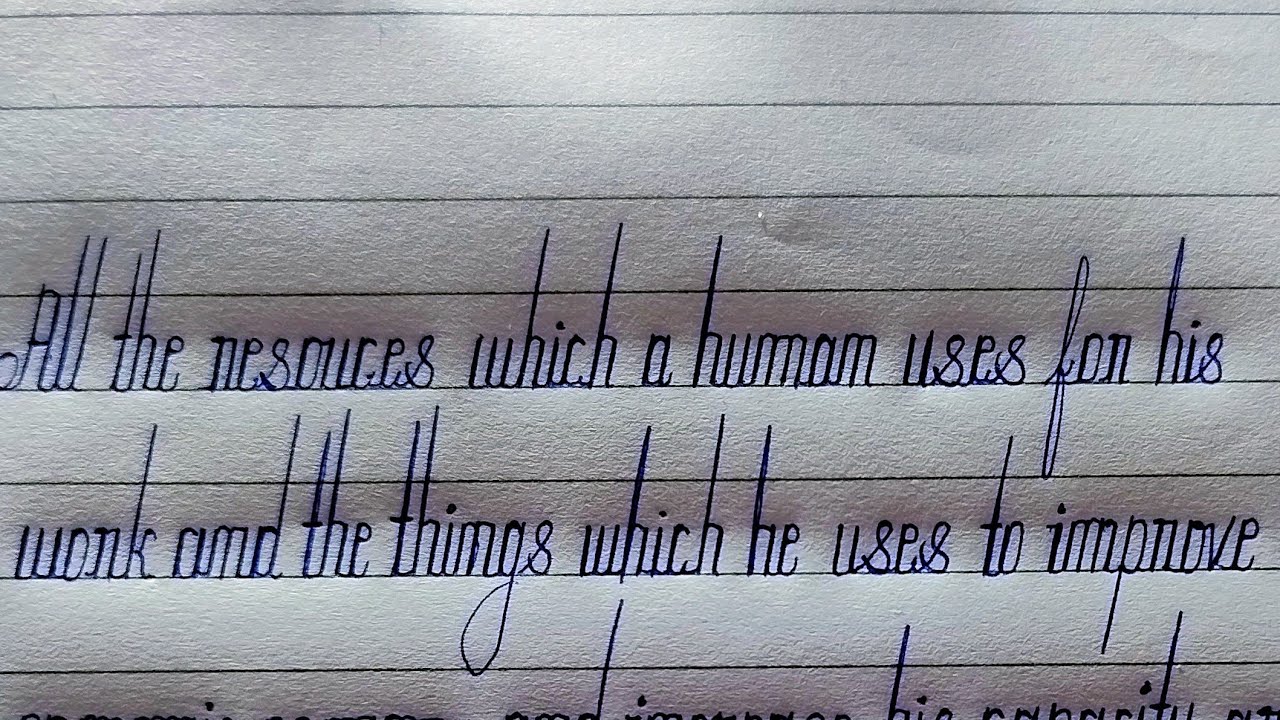 All the resouces which a human uses for his
work and the things which he uses to improve
and increase his capacity